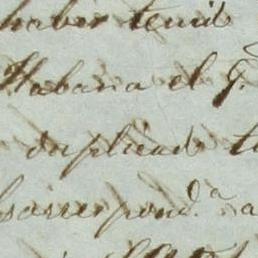 haber tenid
Habana el G.
duplicado t
correspond.a a